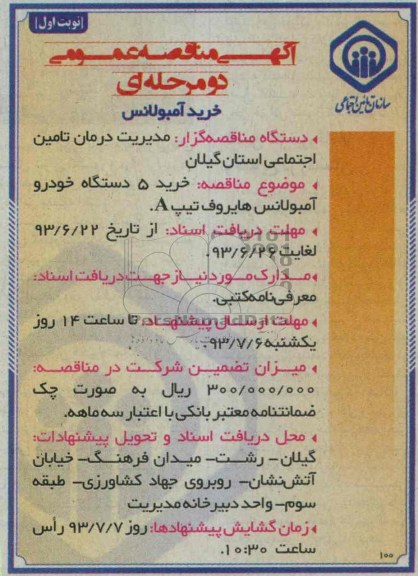 نوبت اول
سازمان تأمین اجتماعی
آگهی مناقصه عمومی
دو مرحله ای
خرید آمبولانس
دستگاه مناقصه‌گزار: مدیریت درمان تامین
اجتماعی استان گیلان
موضوع مناقصه: خرید ۵ دستگاه خودرو
آمبولانس هایروف تیپ A.
مهلت دریافت اسناد: از تاریخ ۹۳/۶/۲۲
لغایت ۹۳/۶/۲۶.
مدارک مورد نیاز جهت دریافت اسناد:
معرفی‌نامه کتبی.
مهلت ارسال پیشنهاد: تا ساعت ۱۴ روز
یکشنبه ۹۳/۷/۶.
میزان تضمین شرکت در مناقصه:
۳۰۰/۰۰۰/۰۰۰ ریال به صورت چک
ضمانتنامه معتبر بانکی با اعتبار سه ماهه.
محل دریافت اسناد و تحویل پیشنهادات:
گیلان- رشت- میدان فرهنگ- خیابان
آتش‌نشان- روبروی جهاد کشاورزی- طبقه
سوم- واحد دبیرخانه مدیریت
زمان گشایش پیشنهادها: روز ۹۳/۷/۷ رأس
ساعت ۱۰:۳۰.
۱۰۰